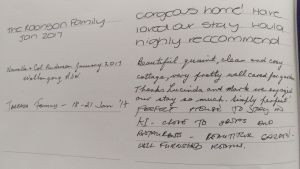 The Robinson Family
Jan 2017
Gorgeous home! Have
loved our stay. Would
highly reccommend.
Narelle & Col Anderson January 2017
Wollongong NSW
Beautiful, quaint, clean and cosy
cottage, very pretty well cared for garden
Thanks Lucinda and Mark we enjoyed
our stay so much. Simply perfect
Teresa - 18-21 Jan '17
PERFECT HOUSE TO STAY IN
CLOSE TO SHOPS AND
RESTAURANTS - BEAUTIFUL GARDEN -
WELL FURNISHED ROOMS.